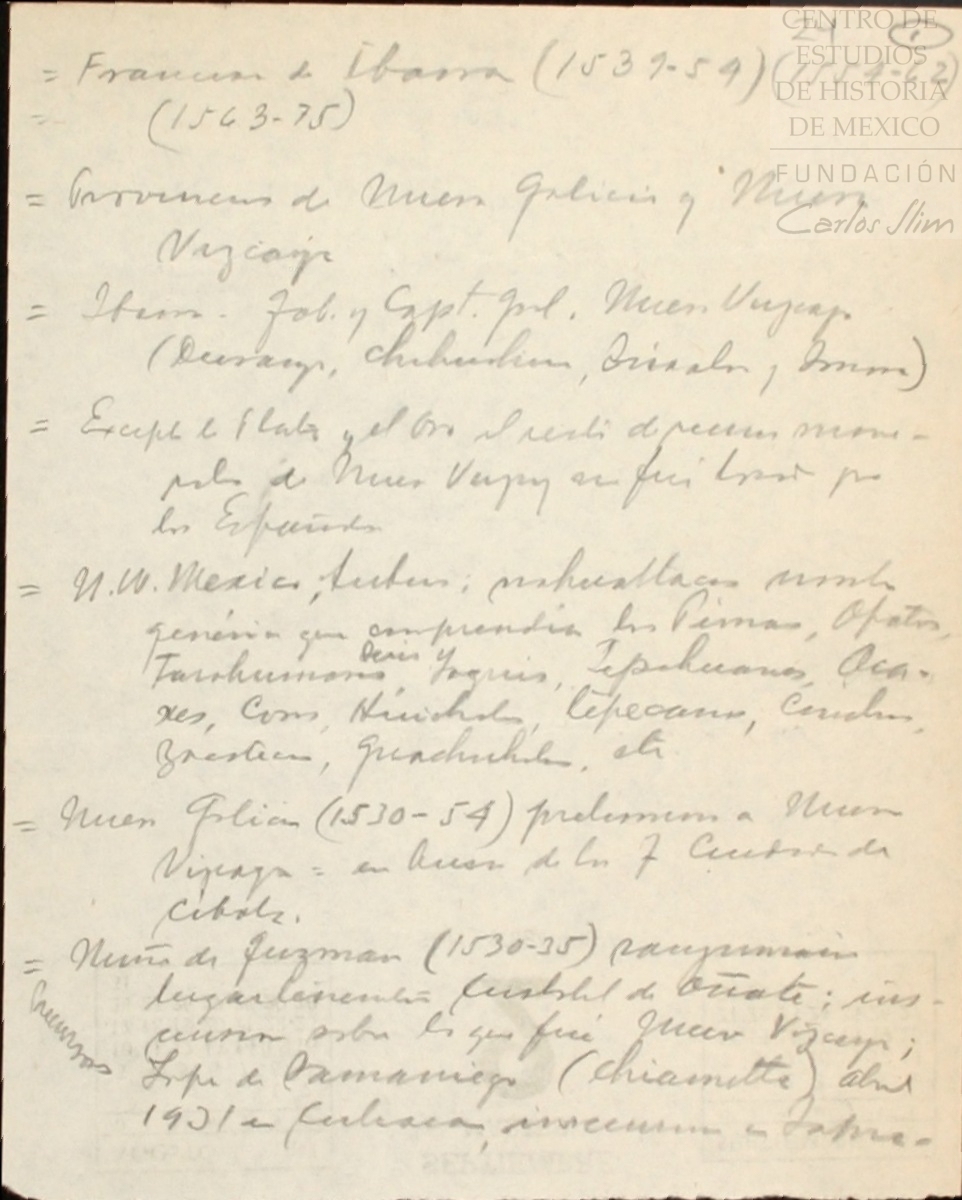 CENTRO DE
ESTUDIOS
DE HISTORIA
DE MEXICO
FUNDACIÓN
Carlos Slim
= Francisco de Ibarra (1539-54) (1554-62)
(1563-75)
= Provincias de Nueva Galicia y Nueva
Vizcaya
= Ibarra - Gob. y Capt. Gral. Nueva Vizcaya
(Durango, Chihuahua, Sinaloa y Sonora)
= Excepto la Plata y el Oro el resto de
de Nueva Vizcaya no fué por
los Españoles
= N.W. Mexico, tribus: nahuatlacas nombre
genérico que comprendía los Pimas, Opatas,
Tarahumaras, Seris y Yaquis, Tepehuanes, Aca-
xes, Coras, Huicholes, Tepecanos, Conchos,
Zacatecas, Guachichiles, etc
= Nueva Galicia (1530-54) preliminares a Nueva
Vizcaya = en busca de las 7 Ciudades de
Cibola.
= Nuño de Guzman (1530-35)
lugarteniente Cristobal de Oñate; incur-
sion sobre lo que fué Nueva Vizcaya;
Lope de Samaniego (Chiametla) abril
1931 a Culiacan, incursion a Topia-